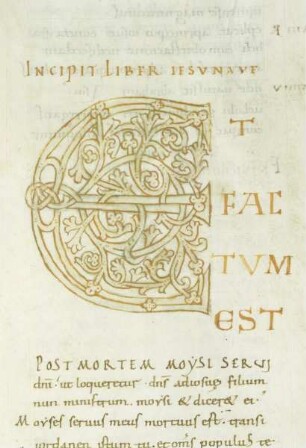 INCIPIT LIBER IESUNAVE
ET
FAC
TVM
EST
POST MORTEM MOYSI SERVI
dni ut loqueretur dns adiosue filium
nun ministrum moysi & dicer& ei
Moyses seruus meus mortuus est transi
iordanem istum tu et omis populus te